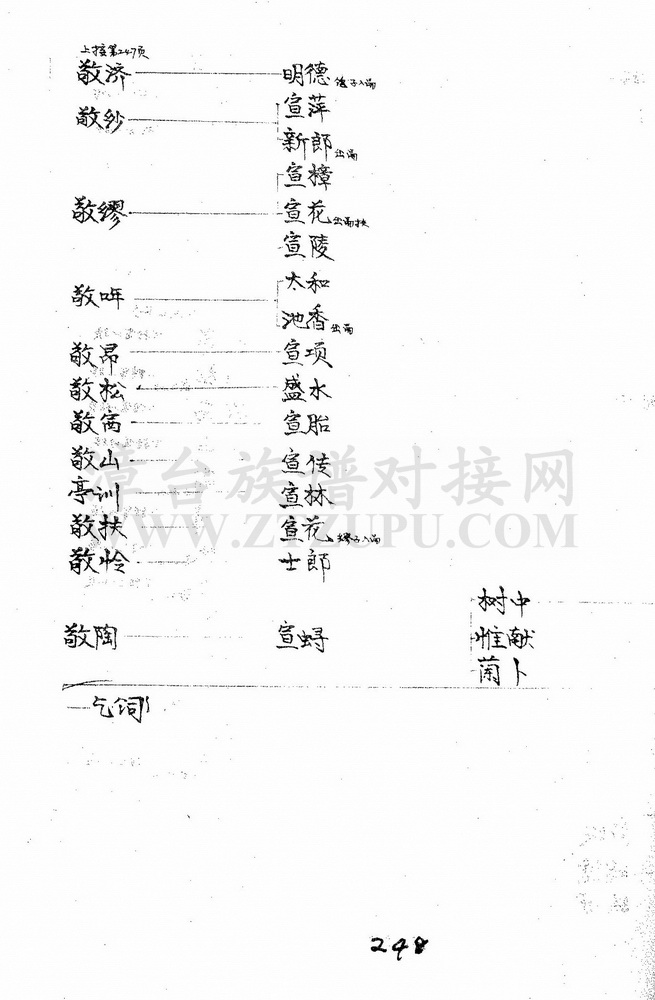 上接第247页
敬济 明德
敬纱 宣萍
新郎 出嗣
宣樟
敬缪 宣花 出嗣扶
宣陵
敬哖 太和
池香 出嗣
敬昂 宣项
敬松 盛水
敬窝 宣胎
敬山 宣传
亭训 宣林
敬扶 宣花 缪子入嗣
敬怜 士郎
树中
敬陶 宣蟳 惟献
菌卜
漳台族谱对接网
WWW.ZTZUPU.COM
248